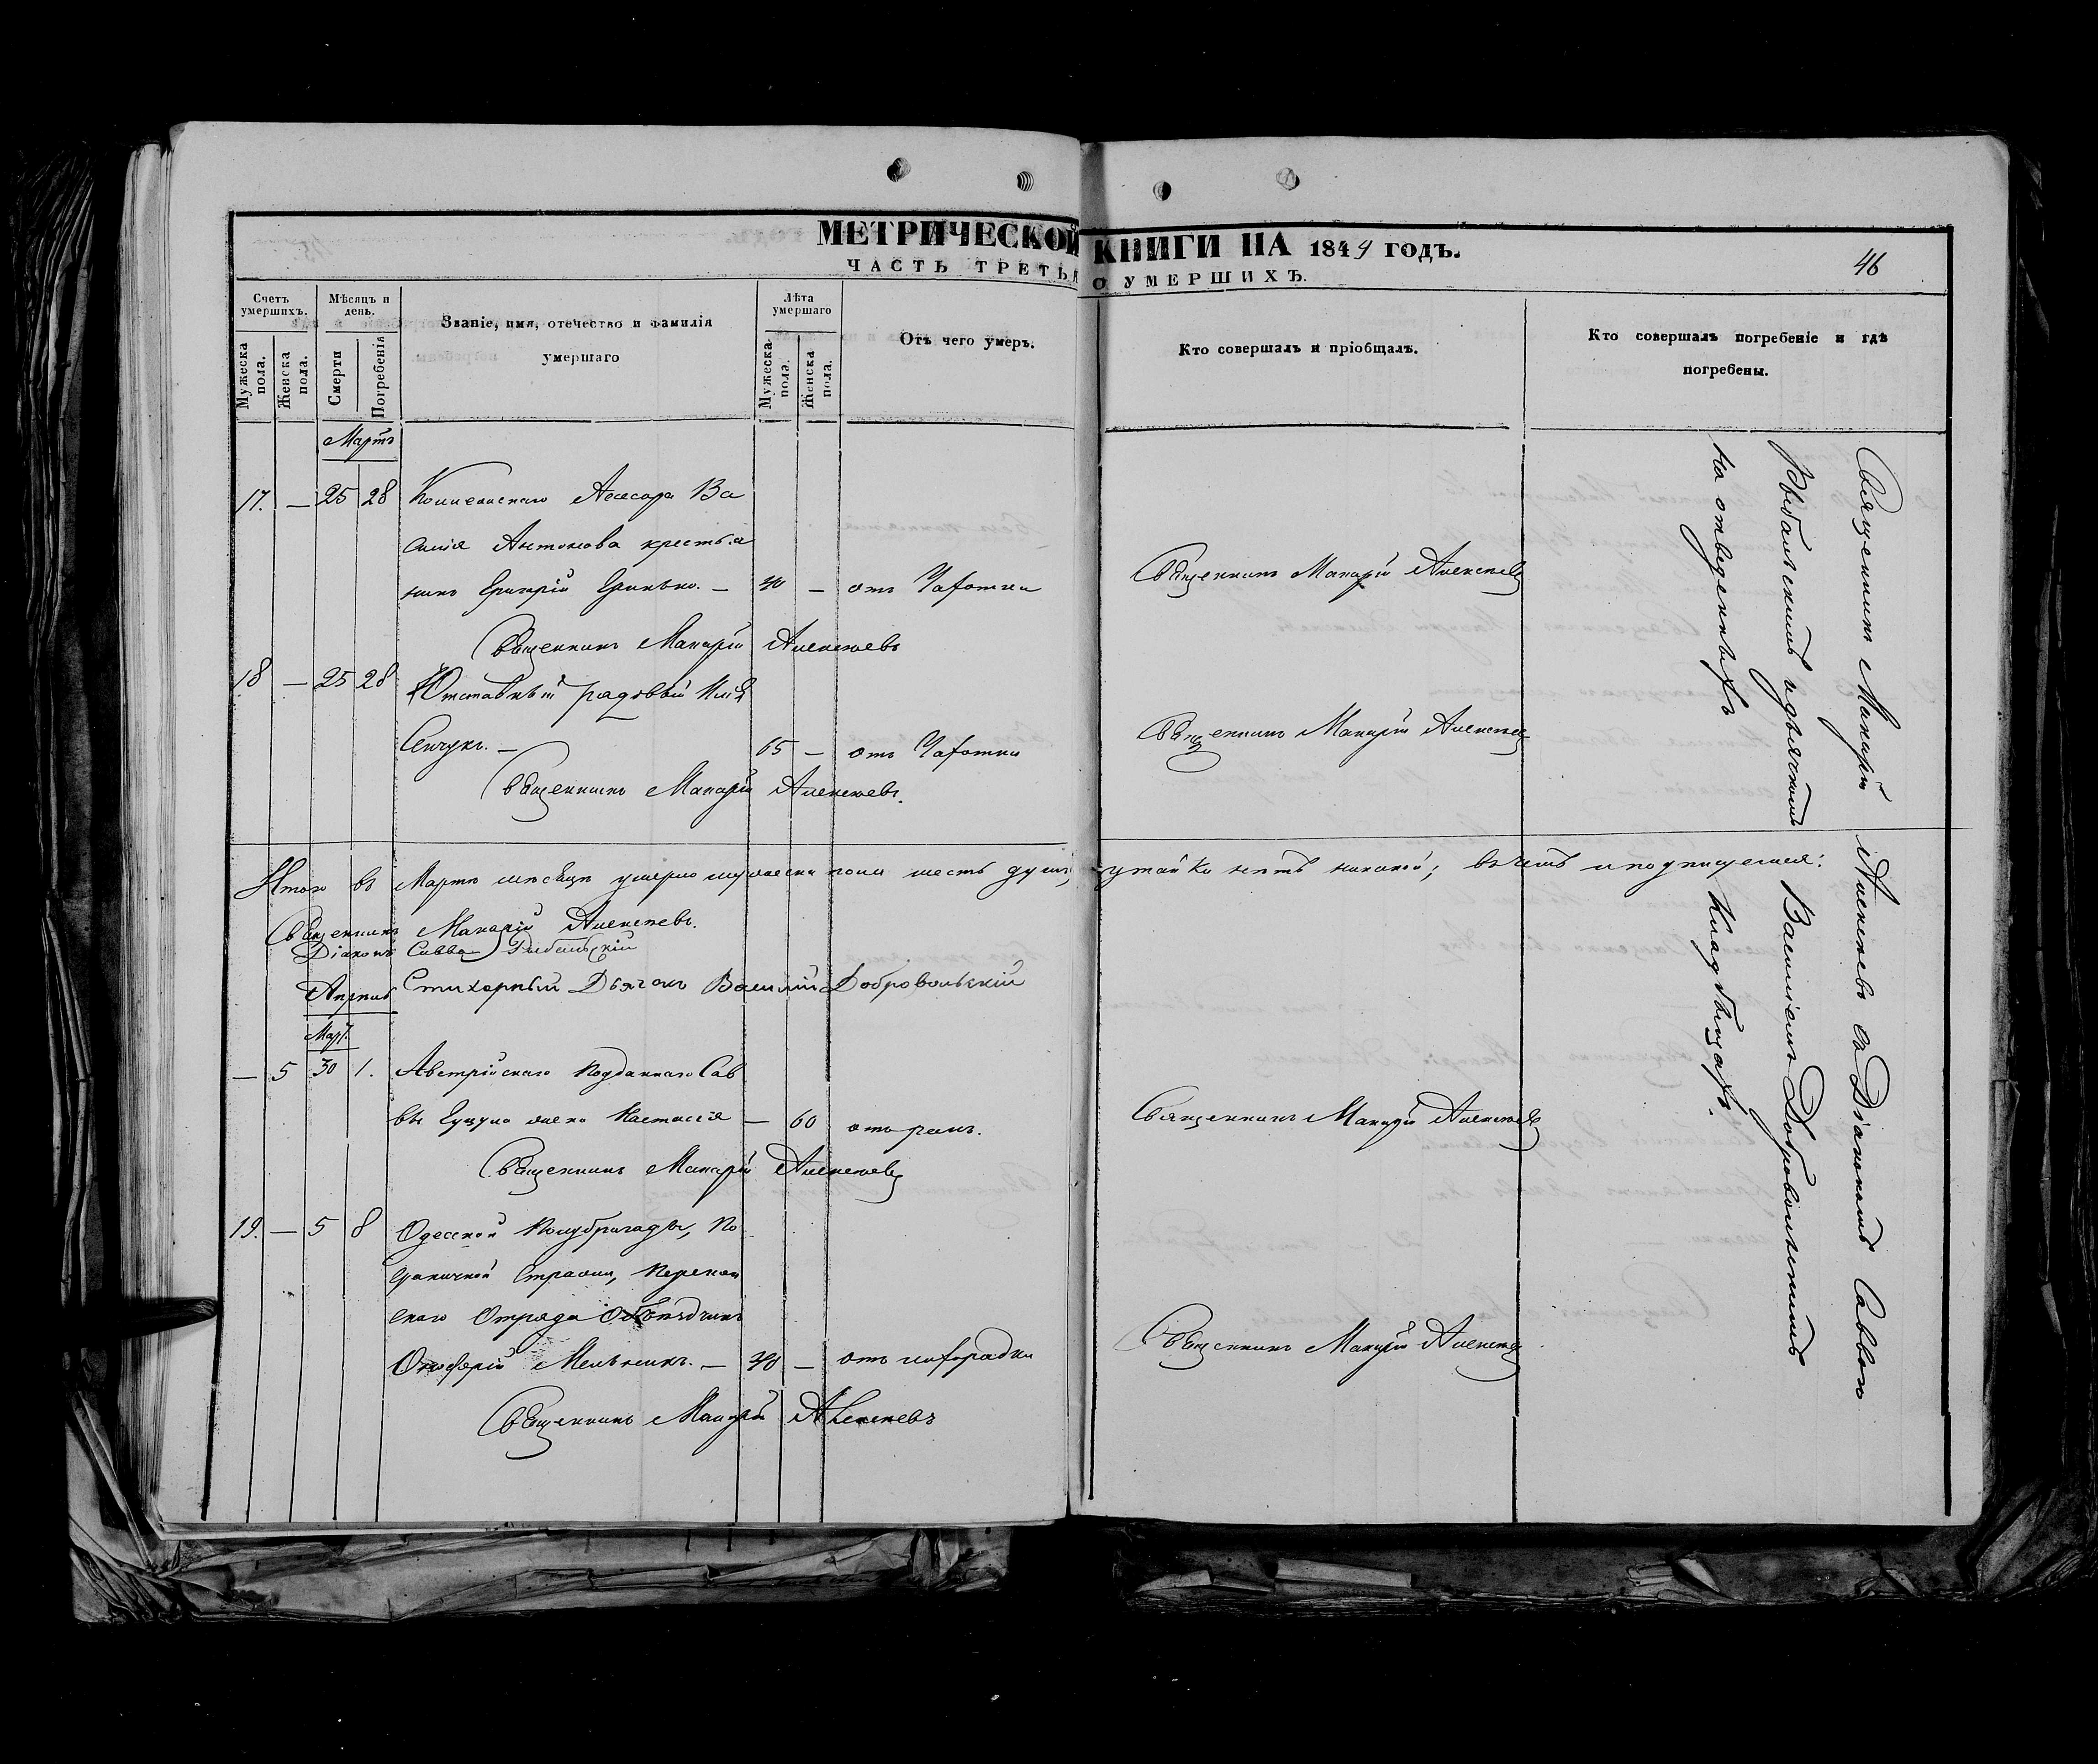 МЕТРИЧЕСКОЙ КНИГИ НА 1849 ГОДЪ.
ЧАСТЬ ТРЕТЬЯ О УМЕРШИХЪ.
46
Счетъ умершихъ.
Мужеска пола.
Женска пола.
Мѣсяцъ и день.
Смерти
Погребенія
Званіе, имя, отечество и фамилія
умершаго
Лѣта умершаго
Мужеска пола.
Женска пола.
Отъ чего умеръ.
Кто совершалъ и пріобщалъ.
Кто совершалъ погребеніе и гдѣ
погребены.
Мартъ
17. — 25 28 Коллежскаго Ассесора Ва
силія Антонова крестья
нинъ Григорій Гринько. — 40 — отъ Чахотки Священникъ Макарій Алексѣевъ
Священникъ Макарій Алексѣевъ
18 — 25 28 Отставный рядовый Илія
Сенчукъ. — 65 — отъ Чахотки Священникъ Макарій Алексѣевъ
Священникъ Макарій Алексѣевъ.
Итого въ Мартѣ мѣсяцѣ умерло мужеска пола шесть душъ, утайки нѣтъ никакой; въ чемъ и подпишемся:
Священникъ Макарій Алексѣевъ.
Діаконъ Савва Рыбальскій
Стихарный Дьячокъ Василій Добровольскій
Апрѣль
Март.
— 5 30 1. Австрійскаго подданнаго Сав
вы жена Настасія — 60 отъ ранъ. Священникъ Макарій Алексѣевъ
Священникъ Макарій Алексѣевъ
19. — 5 8 Одесской Полубригады, По
граничной Стражи, Перекоп
скаго Отряда Объѣздчикъ
Онуфрій Мельникъ. — 40 — отъ лихорадки Священникъ Макарій Алексѣевъ
Священникъ Макарій Алексѣевъ
Священникъ Макарій Алексѣевъ съ Діакономъ Саввою
Рыбальскимъ и дьячкомъ Василіемъ Добровольскимъ
на отведенныхъ кладбищахъ.